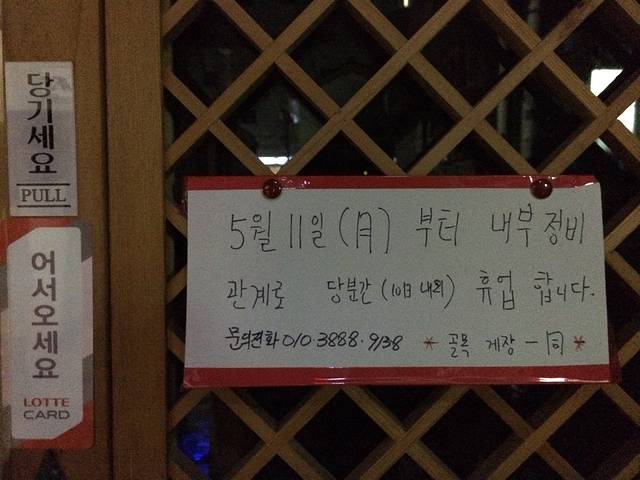 당기세요
PULL
어서오세요
LOTTE
CARD
5월 11일 (月) 부터 내부정비
관계로 당분간 (10日 내외) 휴업 합니다.
문의전화 010 3888·9138 * 골목 게장 一同 *